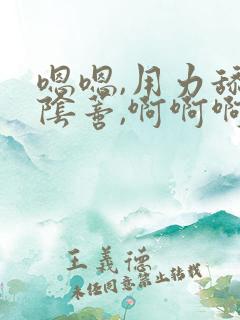 嗯嗯,用力舔
陰蒂,啊啊啊
王義德
未经同意禁止转载